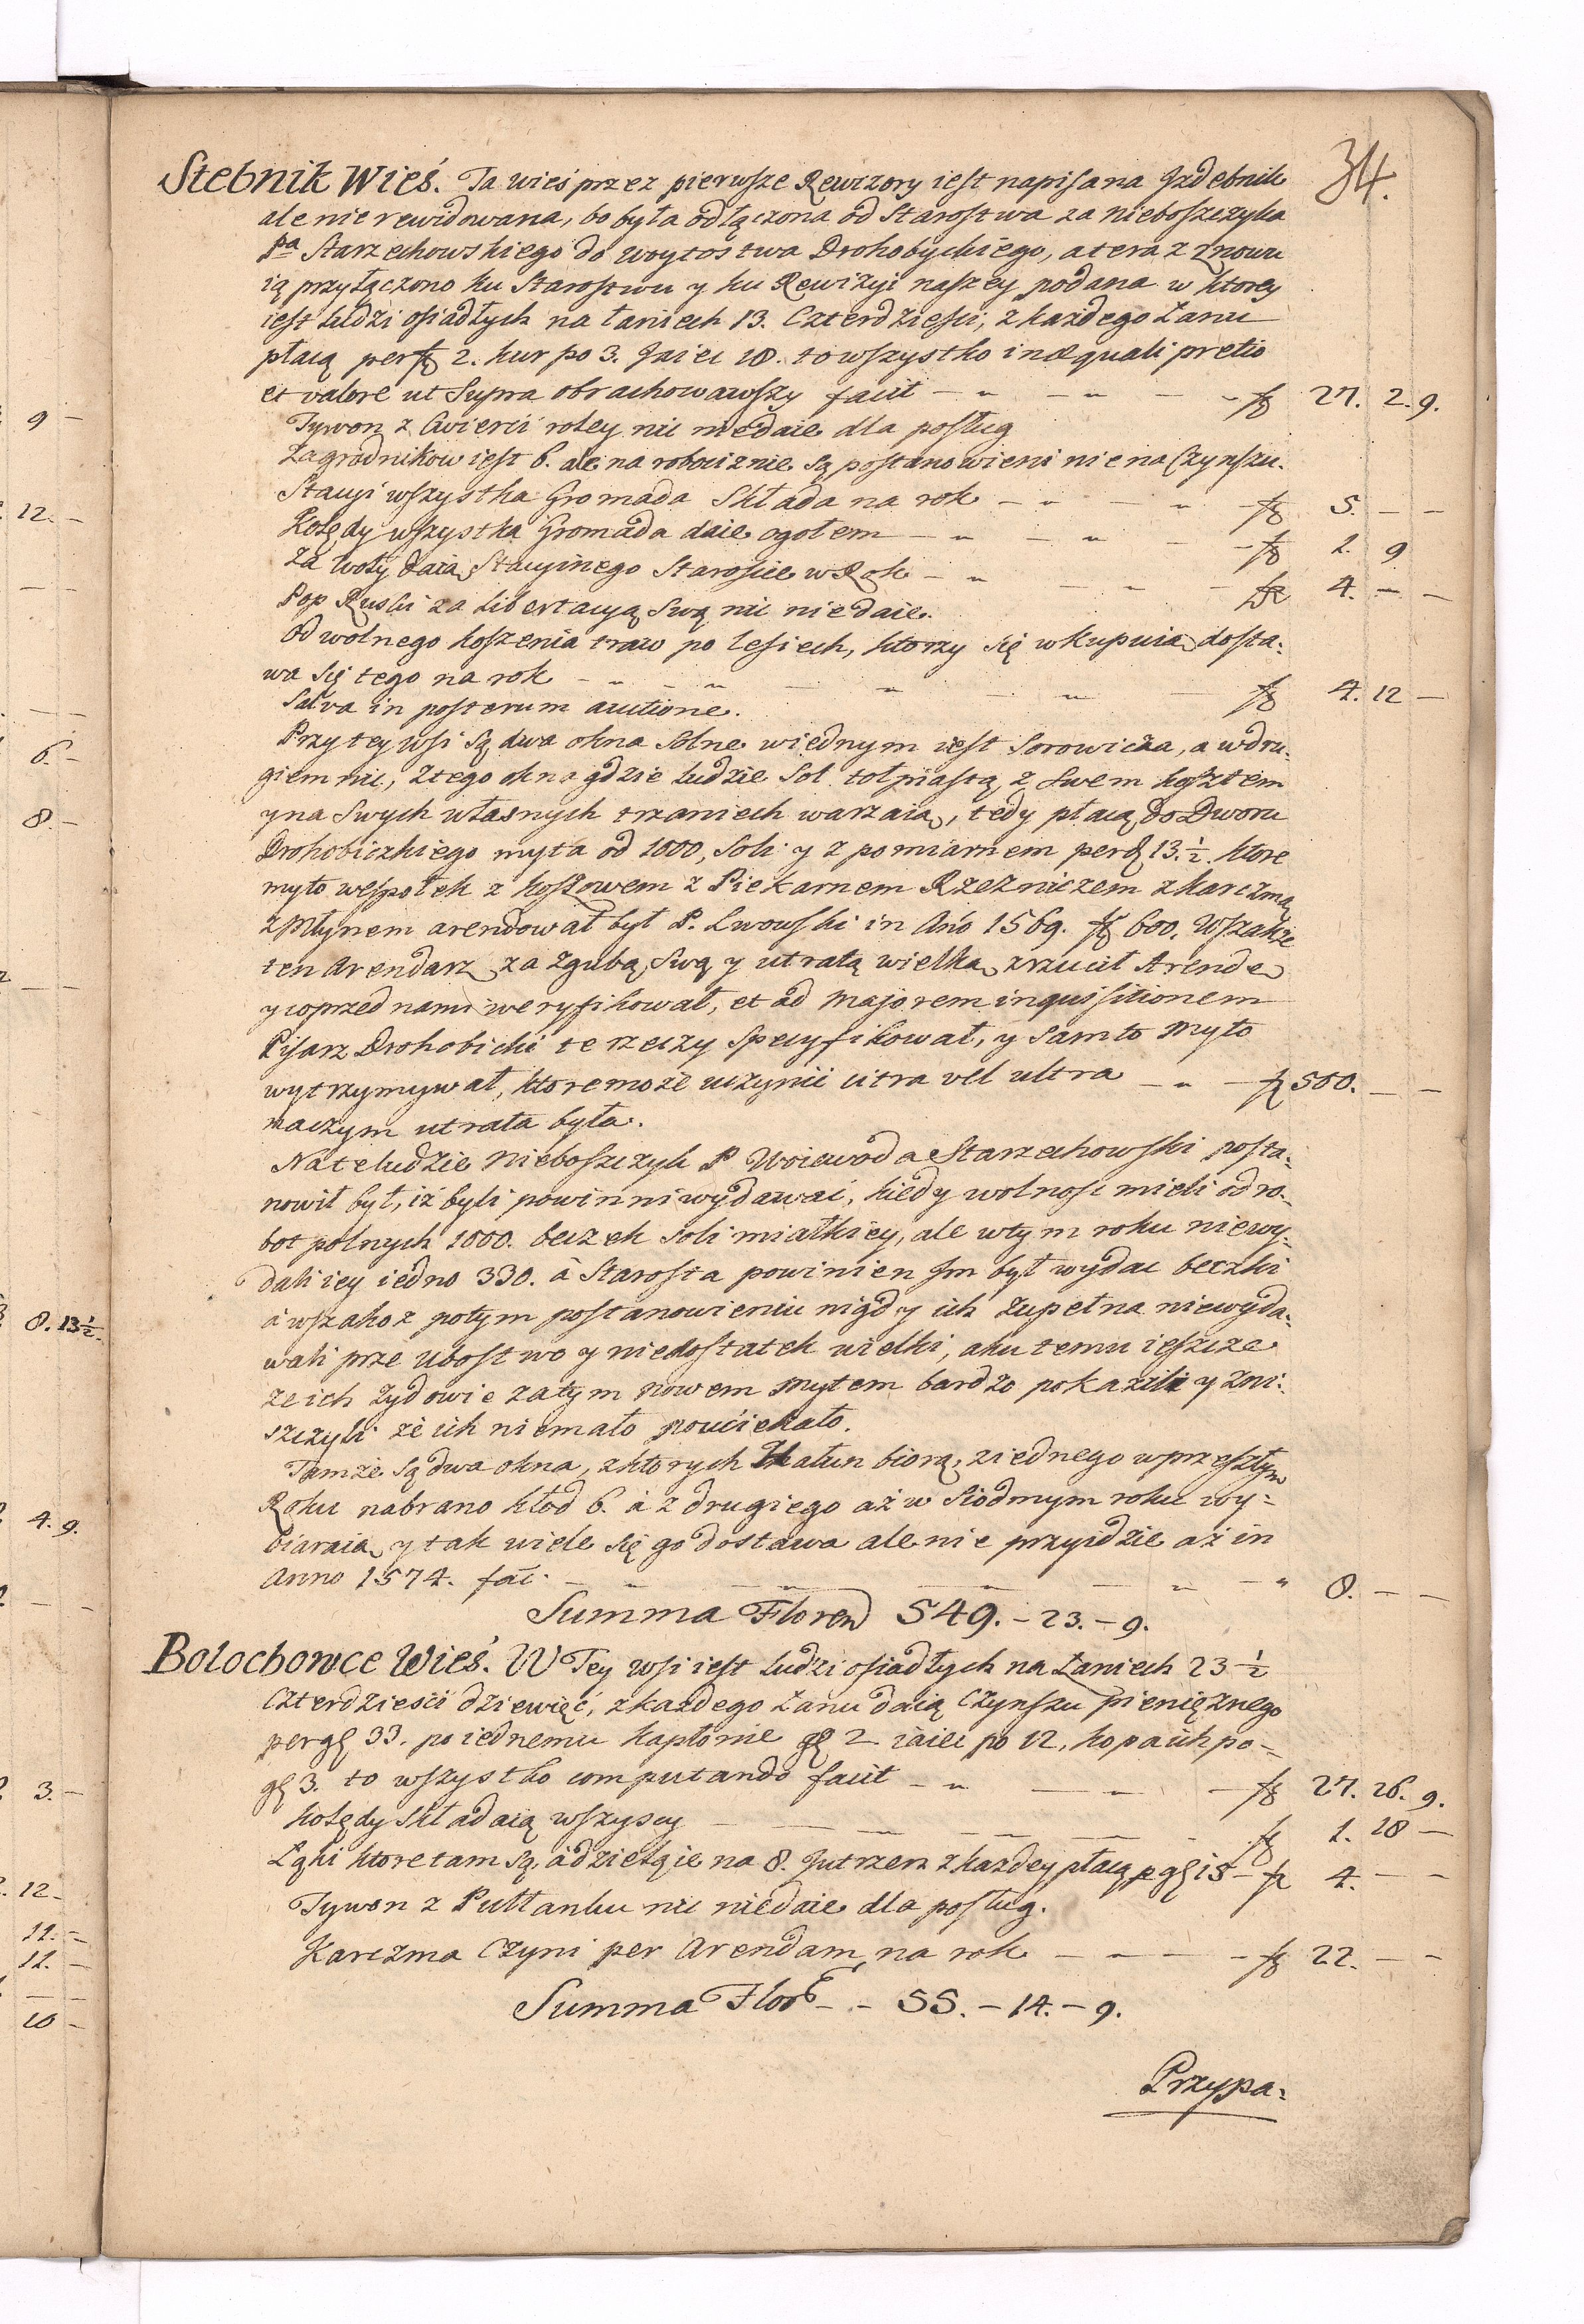 34.
Stebnik Wieś. Ta wieś przez pierwsze Rewizory iest napisana Jzdebnik
ale nie rewidowana, bo była odłączona od Starostwa za nieboszczyka
Pa Starzechowskiego do woytostwa Drohobyckiego, a teraz znowu
ią przyłączono ku Starostwu y ku Rewizyi naszey podana w ktorey
iest ludzi osiadłych na łaniech 13. Czterdzieści, z każdego Łanu
płacą per fl 2. kur po 3. Jaiec 18. to wszystko in æquali pretio
et valore ut Supra obrachowawszy facit — " — " — — fl 27. 2. 9.
Tywon z Cwierci roley nic niedaie dla posług
Zagrodnikow iest 6. ale na robociznie są postanowieni nie na Czynszu.
Stacyi wszystka Gromada Składa na rok — " — " — fl 5. — —
Kolędy wszystka Gromada daie ogołem — " — " — fl 2. 9
Za woły daią Stacyinego Staroście w Rok — " — — fl 4. — —
Pop Ruski za libertacyą Swą nic niedaie.
Od wolnego koszenia traw po lesiech, ktorzy się wkupuią dosta:
wa się tego na rok — " — " — " — " — fl 4. 12 —
Salva in posterum auctione.
Przy tey wsi są dwa okna Solne w iednym iest Sorowicza, a w dru:
giem nic, z tego okna gdzie ludzie Sol tołpiastą z Swem kosztem
y na Swych własnych trzaniech warzaią, tedy płacą do Dworu
Drohobickiego myta od 1000, Soli y z pomiarnem per fl 13. ½. ktore
myto wespołek z koszowem z Piekarnem Rzeźniczem z karczmą
z Młynem arendował był P. Lwowski in Anō 1569. fl 600. Wszakże
ten Arendarz za zgubą Swą y utratą wielką zrzucił Arendę
y to przed nami weryfikował, et ad majorem inquisitionem
Pisarz Drohobicki te rzeczy Specyfikował, y Sam to Myto
wytrzymywał, ktore może uczynić citra vel ultra — " — fl 500. — —
naczym utrata była.
Na te ludzie Nieboszczyk P Woiewoda Starzechowski posta:
nowił był, iż byli powinni wydawać, kiedy wolność mieli od ro:
bot polnych 1000. beczek Soli miałkiey, ale w tym roku niewy:
dali iey iedno 330. a Starosta powinien Jm był wydać beczki
a wszakoż potym postanowieniu nigdy ich zupełna niewyda:
wali prze ubostwo y niedostatek wielki, a ku temu ieszcze
że ich Zydowie zatym nowem Mytem bardzo pokazili y zni:
szczyli że ich niemało pouciekało.
Tamże są dwa okna, z ktorych Hałun biorą, z iednego w przeszłym
Roku nabrano kłod 6. a z drugiego aż w siodmym roku wy:
biaraią y tak wiele się go dostawa ale nie przyidzie aż in
Anno 1574. fac. — " — " — " — " — " 8. — —
Summa Floren 549. – 23. – 9.
Bolochowce Wieś. W Tey wsi iest ludzi osiadłych na Łaniech 23 ½
Czterdzieści dziewięć, z kazdego Łanu daią Czynszu pieniężnego
per gl 33. po iednemu kapłonie gl 2 iaiec po 12, kopa ich po
gl 3. to wszystko computando facit — " — — fl 27. 26. 9.
kolędy składaią wszyscy — — — — fl 1. 18 —
Łąki ktore tam są, a dzielą ie na 8. Jutrzen z kazdey płacą p gl 15 – fl 4. — —
Tywon z Pułłanku nic niedaie dla posług.
Karczma Czyni per Arendam na rok — — — fl 22. — —
Summa Flor – – 55. – 14. – 9.
Przypa:
9 —
12. —
6. —
8. —
8. 13½.
4. 9.
3. —
12 —
11. —
11. —
10 —